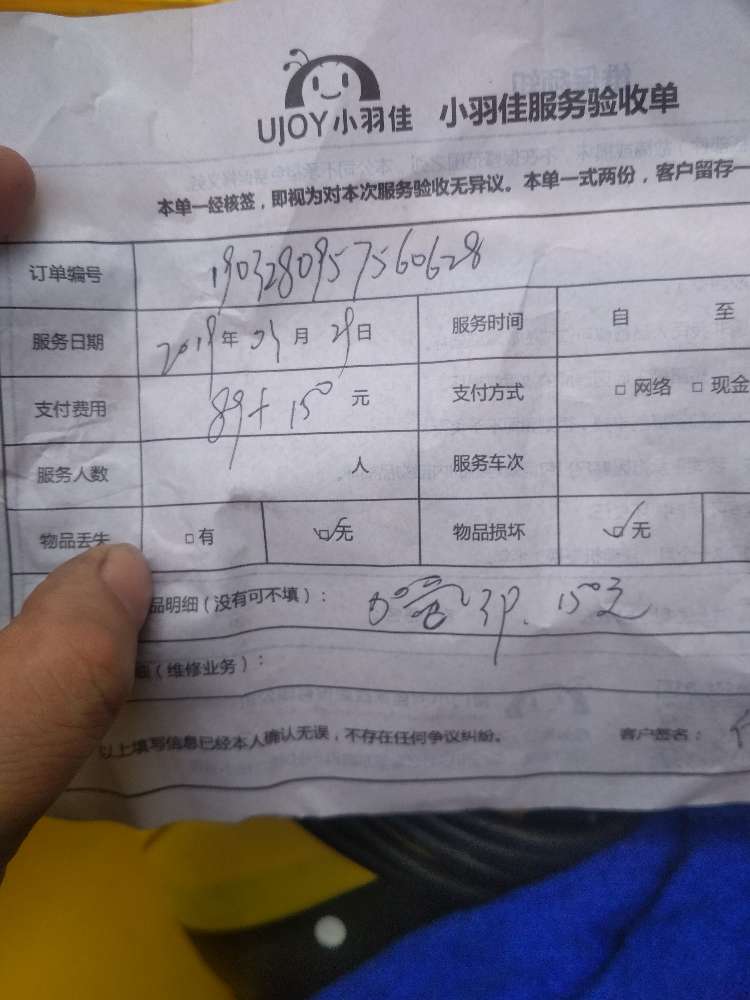 UJOY小羽佳 小羽佳服务验收单
本单一经核签，即视为对本次服务验收无异议。本单一式两份，客户留存一
订单编号 1903280957560628
服务日期 2019年03月29日 服务时间 自 至
支付费用 89+150元 支付方式 □网络 □现金
服务人数 1人 服务车次
物品丢失 □有 □无 物品损坏 □无
品明细（没有可不填）： 3P. 150元
（维修业务）：
以上填写信息已经本人确认无误，不存在任何争议纠纷。 客户签名：